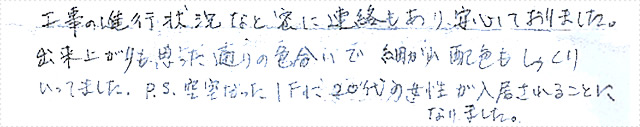 工事の進行状況など密に連絡もあり、安心しておりました。
出来上がりも思った通りの色合いで 細かい配色もしっくり
いってました。P.S. 空室だった1Fに20代の女性が入居されることに
なりました。